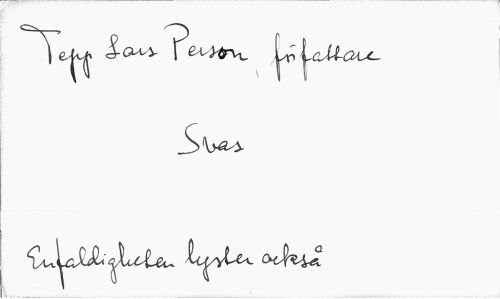 Tepp Lars Person, författare
Svas
Enfaldigheten lyster också